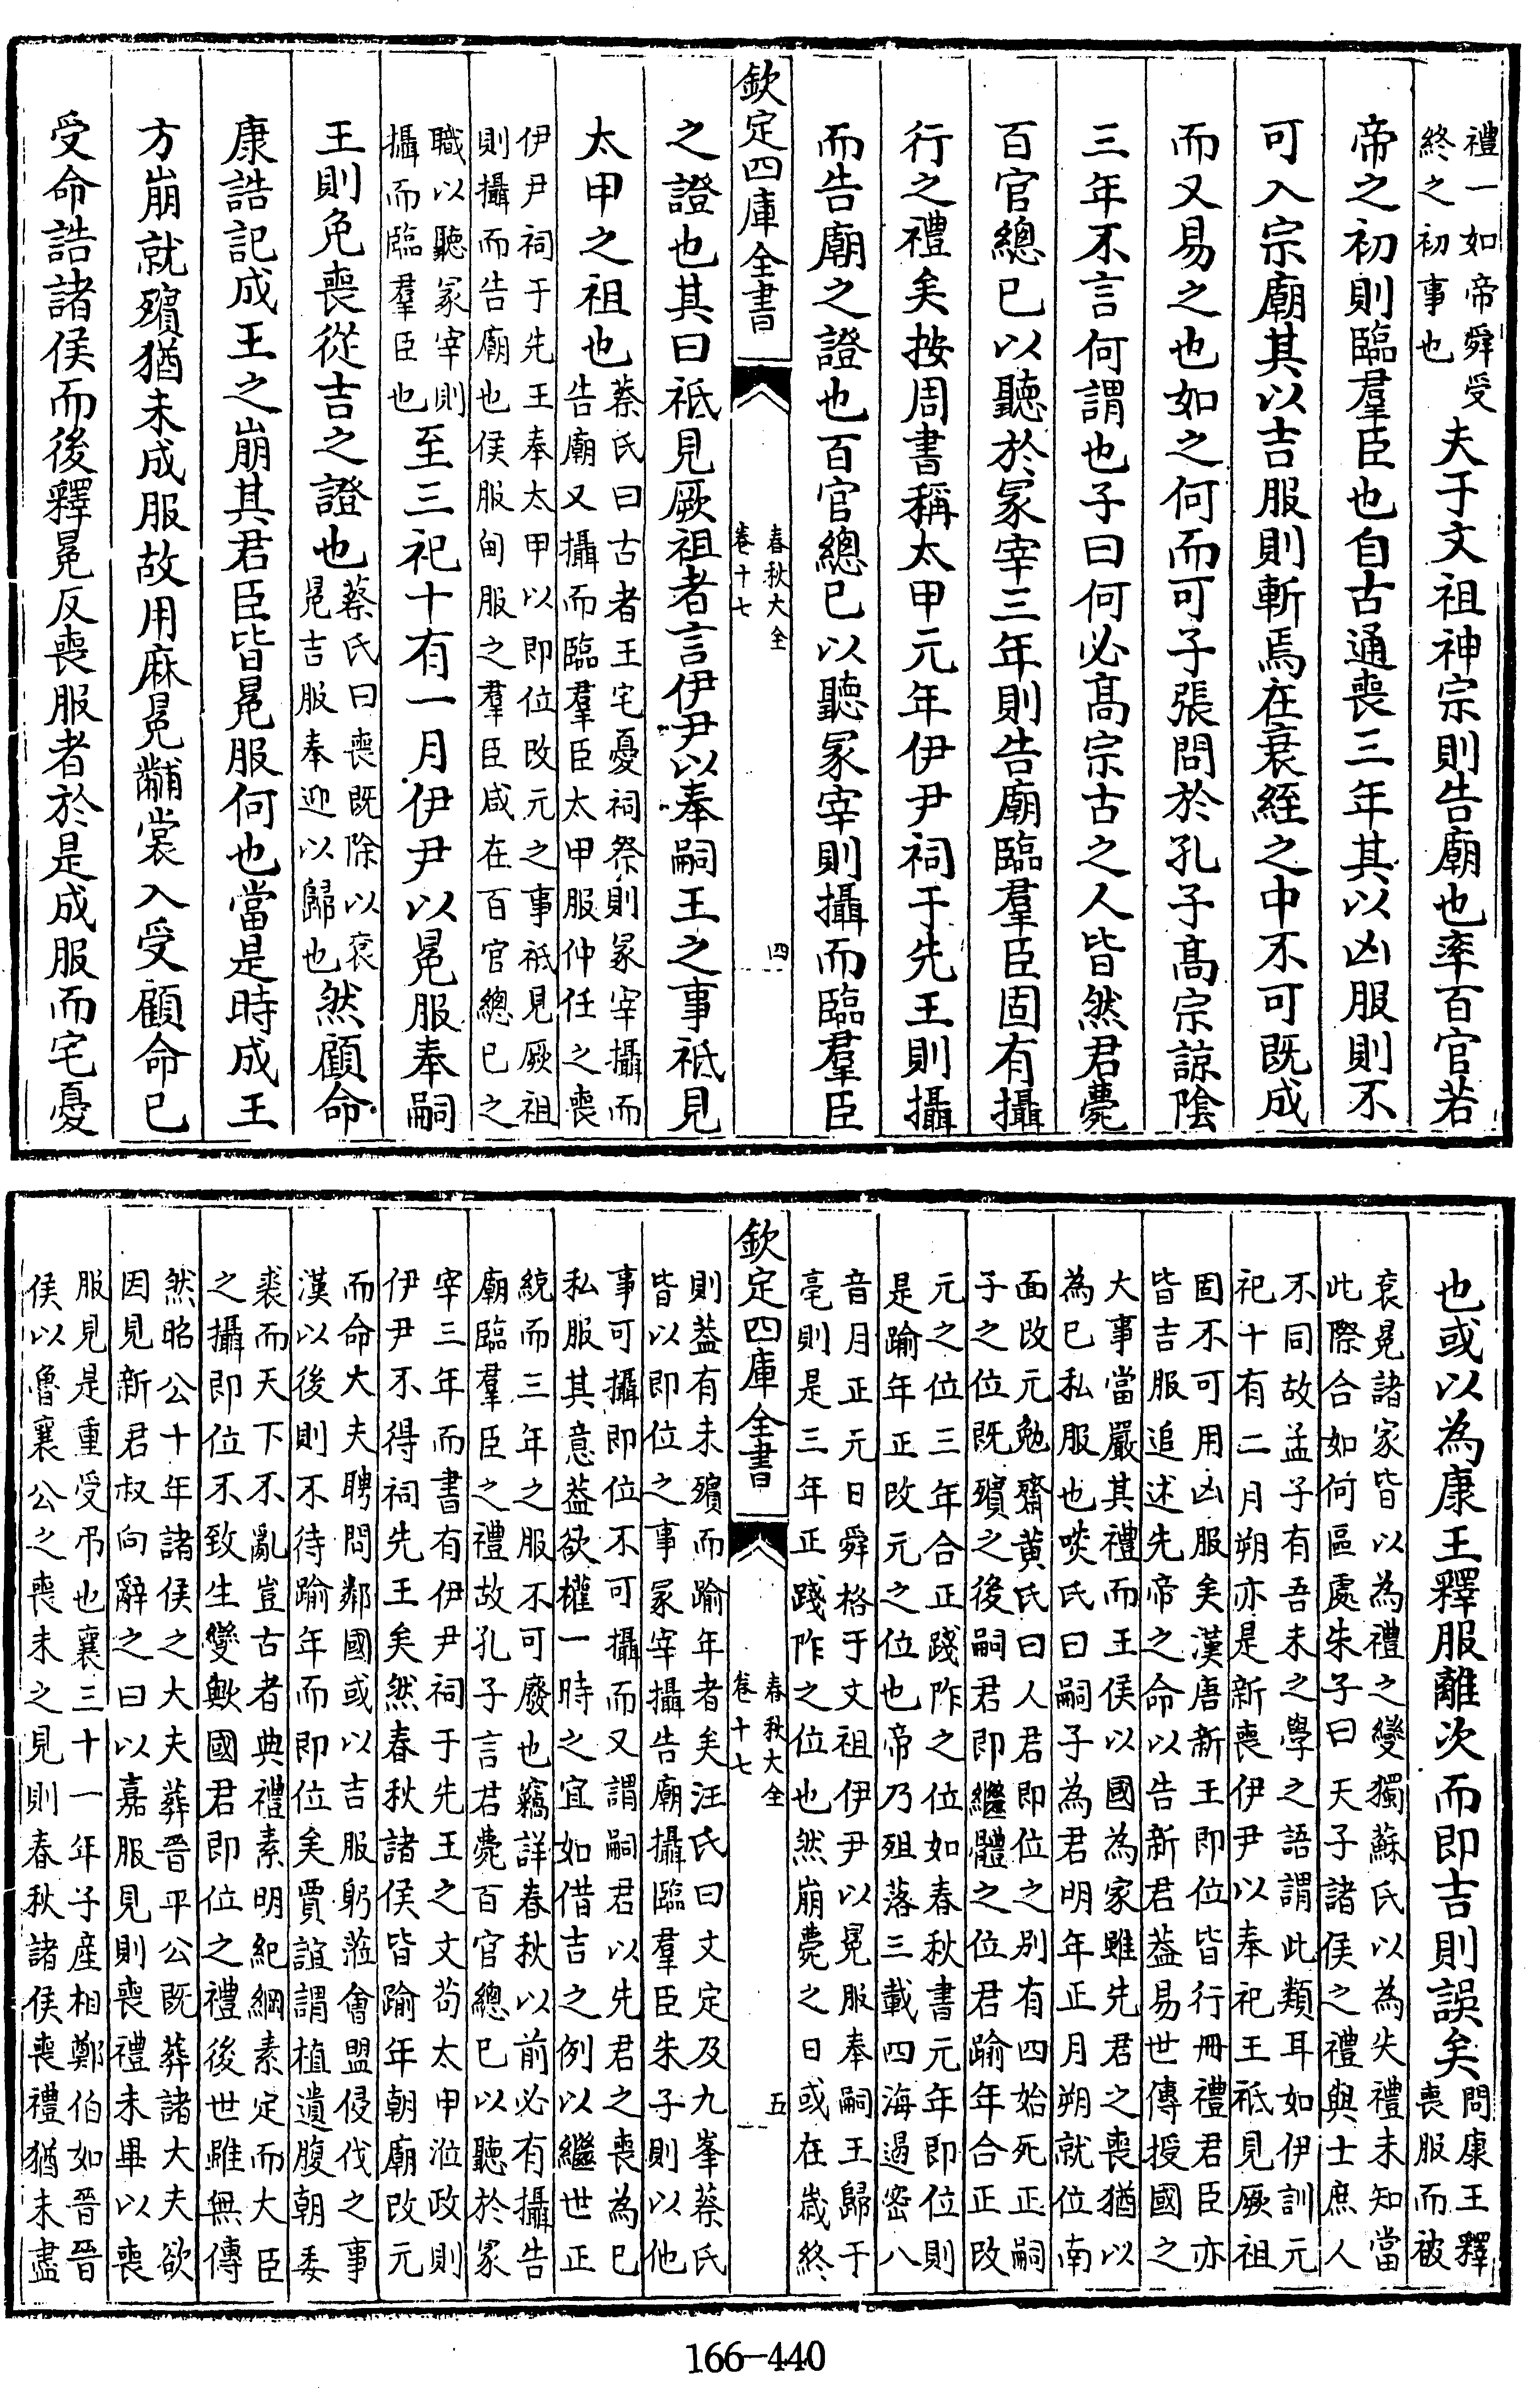 禮一如帝舜受
終之初事也
夫于文祖神宗則告廟也率百官若
帝之初則臨羣臣也自古通喪三年其以凶服則不
可入宗廟其以吉服則斬焉在衰絰之中不可既成
而又易之也如之何而可子張問於孔子髙宗諒陰
三年不言何謂也子曰何必髙宗古之人皆然君薨
百官總已以聽於冢宰三年則告廟臨羣臣固有攝
行之禮矣按周書稱太甲元年伊尹祠于先王則攝
而告廟之證也百官總已以聽冢宰則攝而臨羣臣
欽定四庫全書
春秋大全
卷十七
四
之證也其曰祗見厥祖者言伊尹以奉嗣王之事祗見
太甲之祖也
蔡氏曰古者王宅憂祠祭則冢宰攝而
告廟又攝而臨羣臣太甲服仲任之喪
伊尹祠于先王奉太甲以即位改元之事祗見厥祖
則攝而告廟也侯服甸服之羣臣咸在百官總已之
職以聽冢宰則
攝而臨羣臣也
至三祀十有一月伊尹以冕服奉嗣
王則免喪從吉之證也
蔡氏曰喪既除以衮
冕吉服奉迎以歸也
然顧命
康誥記成王之崩其君臣皆冕服何也當是時成王
方崩就殯猶未成服故用麻冕黼裳入受顧命已
受命誥諸侯而後釋冕反喪服者於是成服而宅憂
也或以為康王釋服離次而即吉則誤矣
問康王釋
喪服而被
衮冕諸家皆以為禮之變獨蘇氏以為失禮未知當
此際合如何區處朱子曰天子諸侯之禮與士庶人
不同故孟子有吾未之學之語謂此類耳如伊訓元
祀十有二月朔亦是新喪伊尹以奉祀王祗見厥祖
固不可用凶服矣漢唐新王即位皆行冊禮君臣亦
皆吉服追述先帝之命以告新君葢易世傳授國之
大事當嚴其禮而王侯以國為家雖先君之喪猶以
為已私服也啖氏曰嗣子為君明年正月朔就位南
面改元勉齋黄氏曰人君即位之別有四始死正嗣
子之位既殯之後嗣君即繼體之位君踰年合正改
元之位三年合正踐阼之位如春秋書元年即位則
是踰年正改元之位也帝乃殂落三載四海遏密八
音月正元日舜格于文祖伊尹以冕服奉嗣王歸于
亳則是三年正踐阼之位也然崩薨之日或在歲終
欽定四庫全書
春秋大全
卷十七
五
則葢有未殯而踰年者矣汪氏曰文定及九峯蔡氏
皆以即位之事冢宰攝告廟攝臨羣臣朱子則以他
事可攝即位不可攝而又謂嗣君以先君之喪為已
私服其意葢欲權一時之宜如借吉之例以繼世正
統而三年之服不可廢也竊詳春秋以前必有攝告
廟臨羣臣之禮故孔子言君薨百官總已以聽於冢
宰三年而書有伊尹祠于先王之文茍太甲涖政則
伊尹不得祠先王矣然春秋諸侯皆踰年朝廟改元
而命大夫聘問鄰國或以吉服躬蒞會盟侵伐之事
漢以後則不待踰年而即位矣賈誼謂植遺腹朝委
裘而天下不亂豈古者典禮素明紀綱素定而大臣
之攝即位不致生變歟國君即位之禮後世雖無傳
然昭公十年諸侯之大夫葬晉平公既葬諸大夫欲
因見新君叔向辭之曰以嘉服見則喪禮未畢以喪
服見是重受弔也襄三十一年子産相鄭伯如晉晉
侯以魯襄公之喪未之見則春秋諸侯喪禮猶未盡
166-440